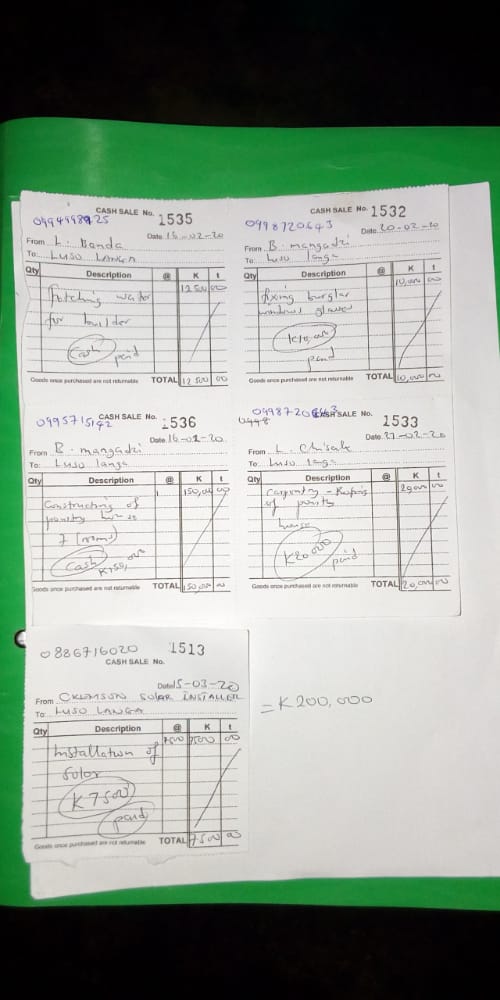 0994998925
CASH SALE No. 1535
Date 16-02-20
From L. Banda
To: LUSO LANGA
Qty Description @ K t
Fetching water 12500 00
for builder
Cash paid
Goods once purchased are not returnable TOTAL 12500 00
CASH SALE No. 1532
0998720643
Date 20-02-20
From B. mangadzi
To: Luso langa
Qty Description @ K t
fixing burglar 10,000 00
windows glasses
K10,000
paid
Goods once purchased are not returnable TOTAL 10,000 00
0995715142
CASH SALE No. 1536
Date 16-02-20
From B. mangadzi
To: Luso langa
Qty Description @ K t
Constructing of 150,000 00
poultry house
7 (rooms)
Cash K150,000
Goods once purchased are not returnable TOTAL 150,000 00
0998720643
CASH SALE No. 1533
0998
Date 27-02-20
From L. Chisale
To: Luso langa
Qty Description @ K t
Carpentry - Roofing 20000 00
of poultry
house
K20000
paid
Goods once purchased are not returnable TOTAL 20,000 00
0886716020 1513
CASH SALE No.
Date 15-03-20
From SOLAR INSTALLER
To: LUSO LANGA
Qty Description @ K t
Installation of 7500 7500 00
solar
K7500
paid
Goods once purchased are not returnable TOTAL 7500 00
= K200,000